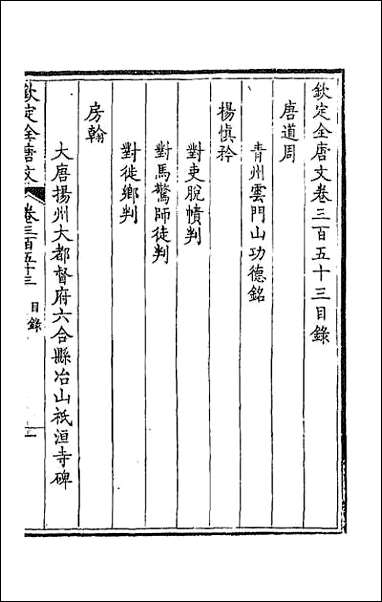 欽定全唐文卷三百五十三目錄
唐道周
青州雲門山功德銘
楊慎矜
對吏脫幘判
對馬驚師徒判
對徙鄉判
房翰
大唐揚州大都督府六合縣冶山祇洹寺碑
欽定全唐文
卷三百五十三 目錄
一